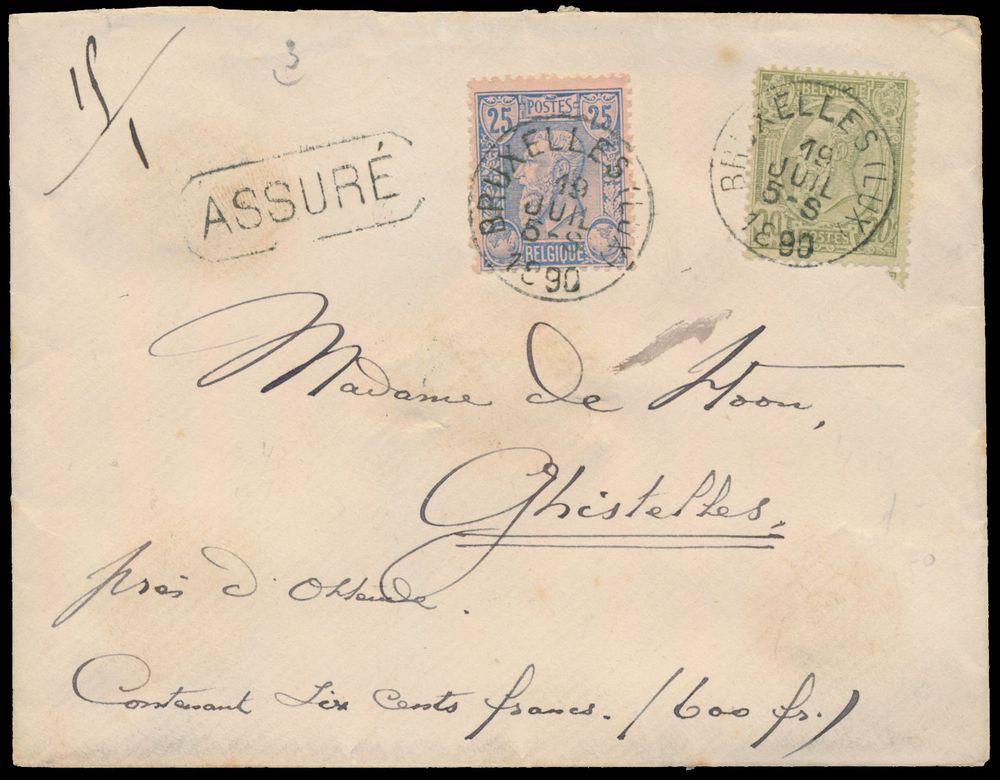 15/1
3
ASSURÉ
25 POSTES 25
BELGIQUE
BRUXELLES (LUX)
19
JUIL
5-S
1890
BELGIQUE
POSTES
BRUXELLES (LUX)
19
JUIL
5-S
1890
Madame de Hoon,
Ghistelles.
près d'Ostende.
Contenant Six cents francs. (600 fr.)